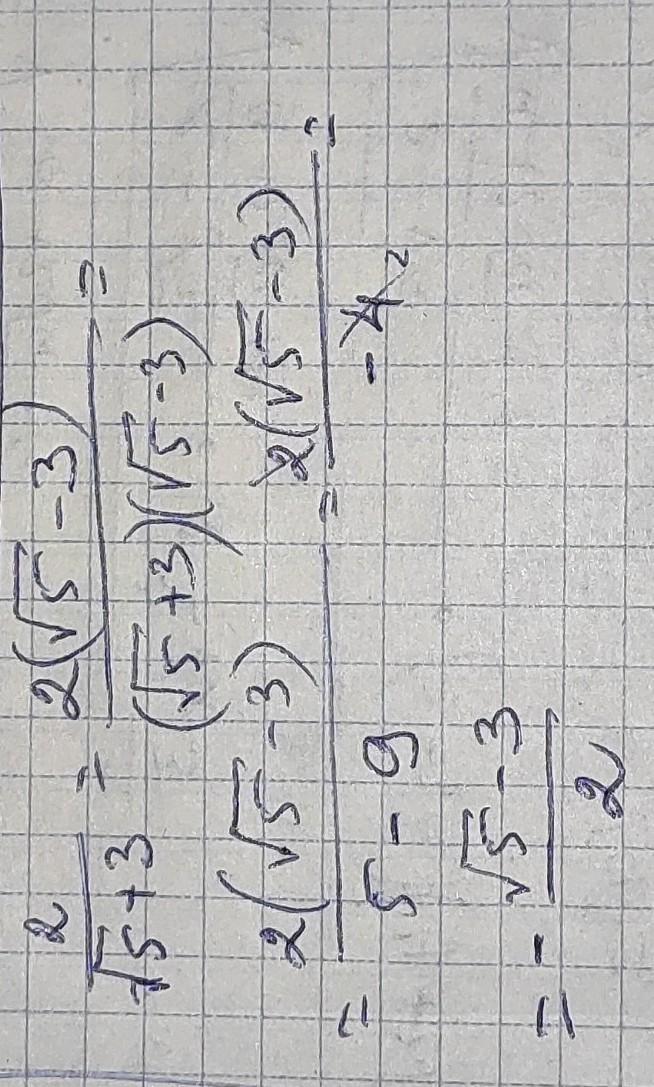 2/(√5+3) = 2(√5-3)/((√5+3)(√5-3)) =
= 2(√5-3)/(5-9) = 2(√5-3)/(-4 2) =
= - (√5-3)/2